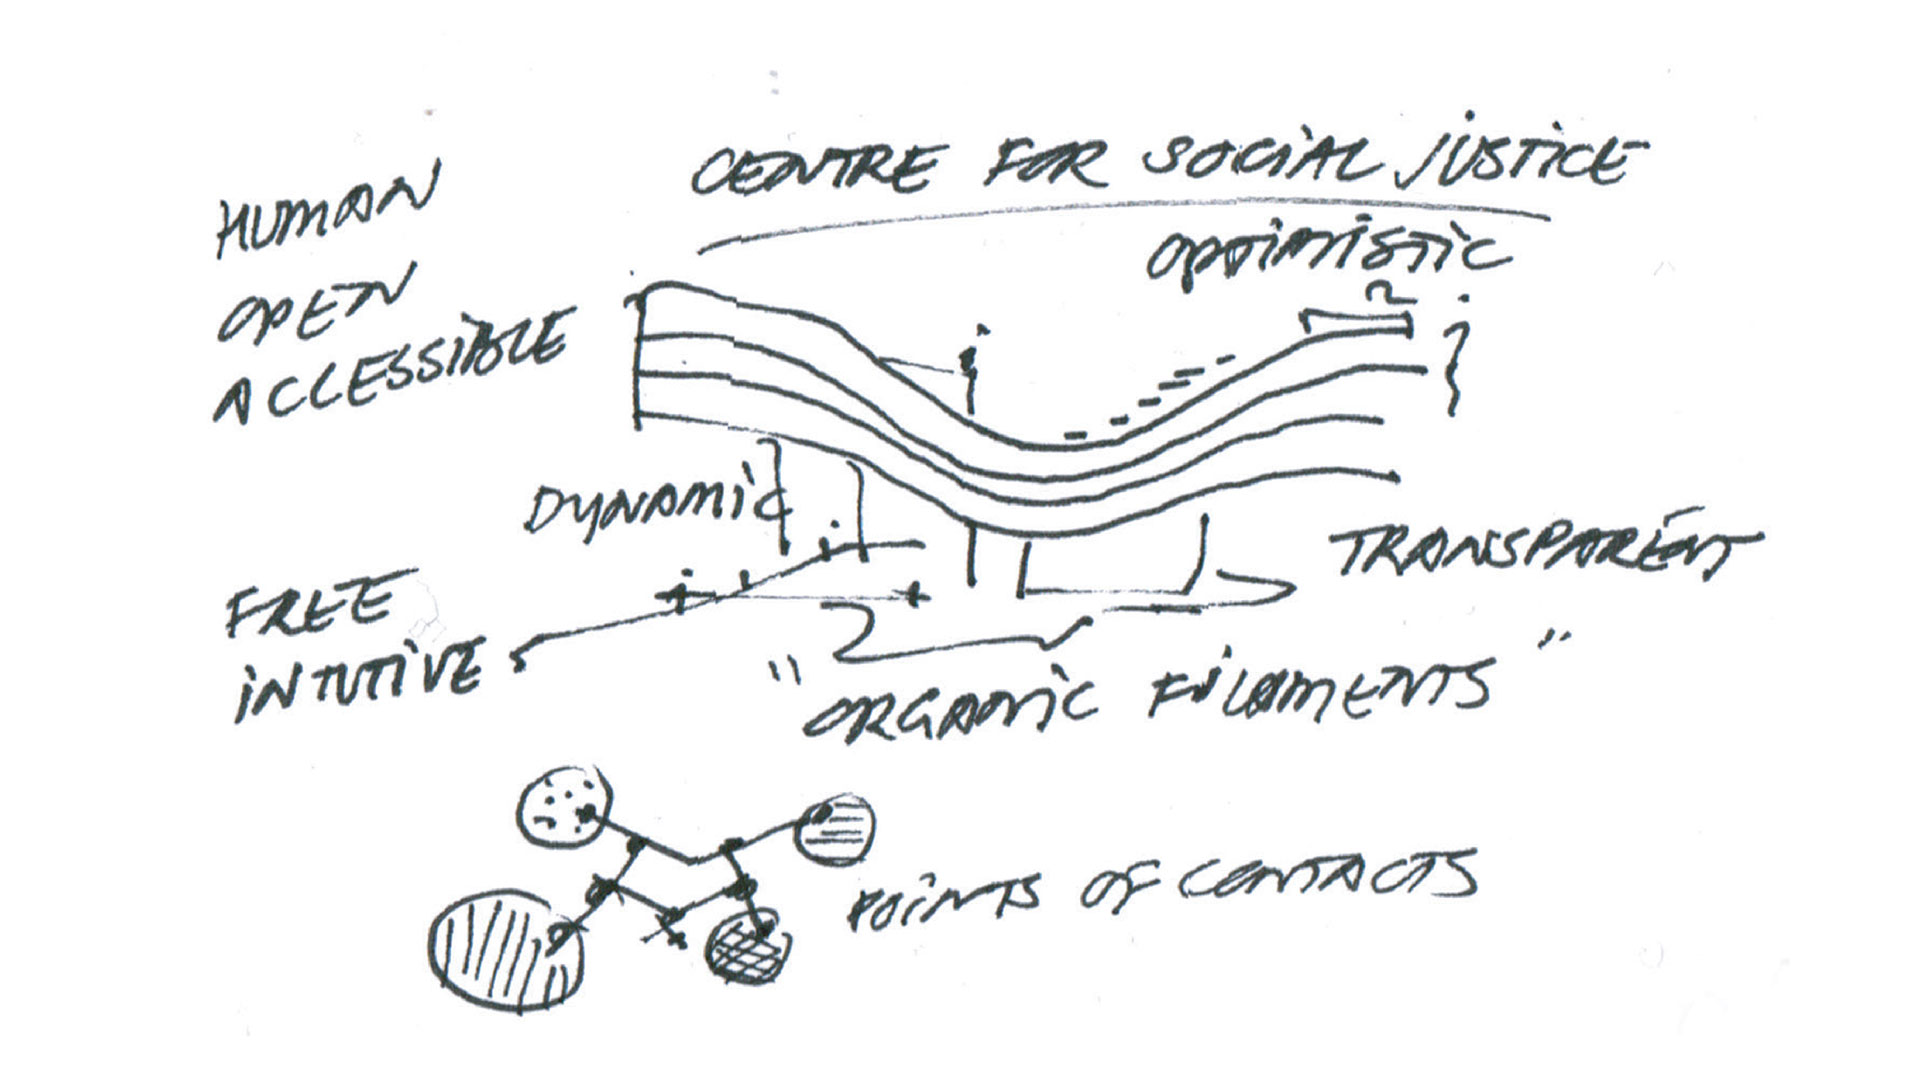 CENTRE FOR SOCIAL JUSTICE
HUMAN
OPEN
ACCESSIBLE
OPTIMISTIC
DYNAMIC
TRANSPARENT
FREE
INTUTIVE
"ORGANIC FILAMENTS"
POINTS OF CONTACTS